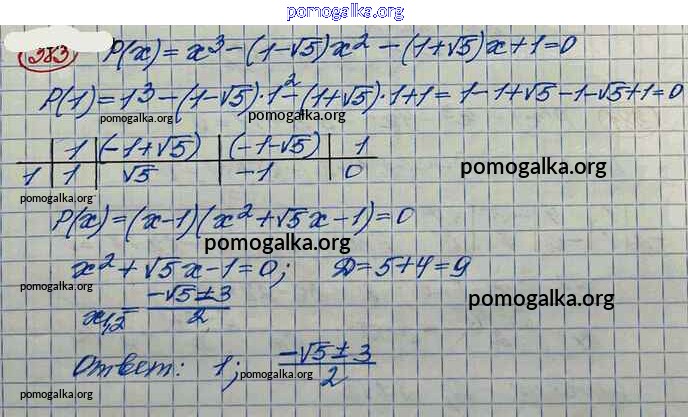 pomogalka.org
383 P(x) = x³ - (1-√5)x² - (1+√5)x + 1 = 0
P(1) = 1³ - (1-√5)·1² - (1+√5)·1 + 1 = 1 - 1 + √5 - 1 - √5 + 1 = 0
pomogalka.org pomogalka.org
1 (-1+√5) (-1-√5) 1
1 1 √5 -1 0
pomogalka.org
pomogalka.org
P(x) = (x-1)(x² + √5x - 1) = 0
pomogalka.org
x² + √5x - 1 = 0; D = 5+4 = 9
pomogalka.org
pomogalka.org
x1,2 = (-√5 ± 3)/2
Ответ: 1; (-√5 ± 3)/2
pomogalka.org
pomogalka.org